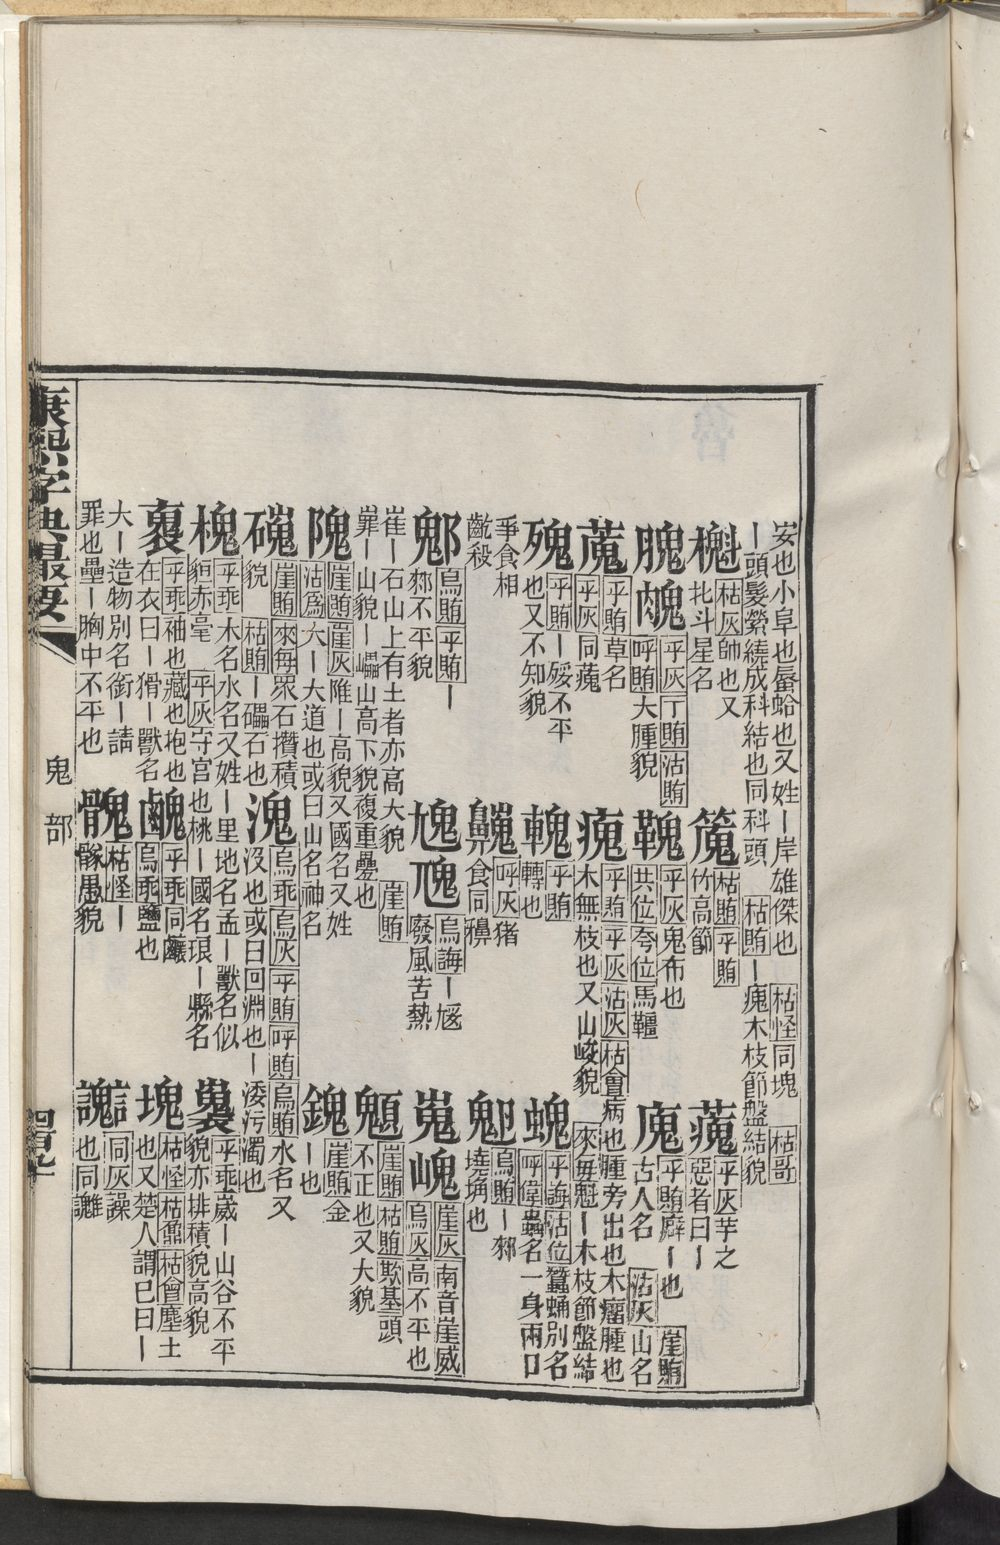 安也小阜也蜃蛤也又姓ー岸雄傑也 枯怪同塊 枯哥
ー頭髮縈繞成科結也同科頭 枯賄ー瘣木枝節盤結貌
枯灰帥也又
北斗星名
枯賄平賄
竹高節
平灰芋之
惡者曰ー
腲 平灰丁賄沽賄
呼賄大腫貌
平灰鬼布也
共位夸位馬韁
廆 平賄廦ー也 崖賄
古人名 沽灰山名
蒐 平賄草名
平灰同蘹
瘣 平賄平灰沽灰枯會病也腫旁出也木瘤腫也
木無枝也又山峻貌 來每魁ー木枝節盤結
平賄ー㱬不平
也又不知貌
平賄
轉也
螝 平誨沽位蠶蛹別名
呼偉蟲名一身兩口
爭食相
齕殺
呼灰豬
食同
烏賄ー
墝埆也
鄎 烏賄平賄ー
不平貌
尵 烏誨ー
廢風苦熱
嵬 嵬 崖灰南音崖威
烏灰高不平也
崔ー石山上有土者亦高大貌 崖賄
崋ー山貌ー山高下貌複重疊也
崖賄枯賄欺基頭
不正也又大貌
隗 崖賄崖灰陮ー高貌又國名又姓
沽爲大ー大道也或曰山名神名
崖賄金
ー也
磈 崖賄來每衆石攢積
貌 枯賄ー礧石也
溾 烏乖烏灰平賄呼賄烏賄水名又
沒也或曰回淵也ー涹污濁也
槐 平乖木名水名又姓ー里地名孟ー獸名似
貆赤毫 平灰守宮也桃ー國名琅ー縣名
平乖嵗ー山谷不平
貌亦排積貌高貌
褢 平乖袖也藏也抱也
在衣曰ー猾ー獸名
平乖同
烏乖鹽也
塊 枯怪枯會塵土
也又楚人謂巳曰ー
大ー造物別名銜ー請
罪也壘ー胸中不平也
枯怪ー
愚貌
同灰譟
也同讙
康熙字典最要
鬼部